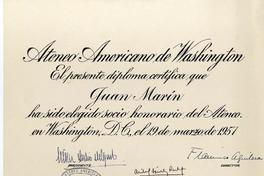 Ateneo Americano de Washington
El presente diploma certifica que
Juan Marín
ha sido elegido socio honorario del Ateneo.
en Washington, D.C., el 19 de marzo de 1951
PRESIDENTE
DIRECTOR